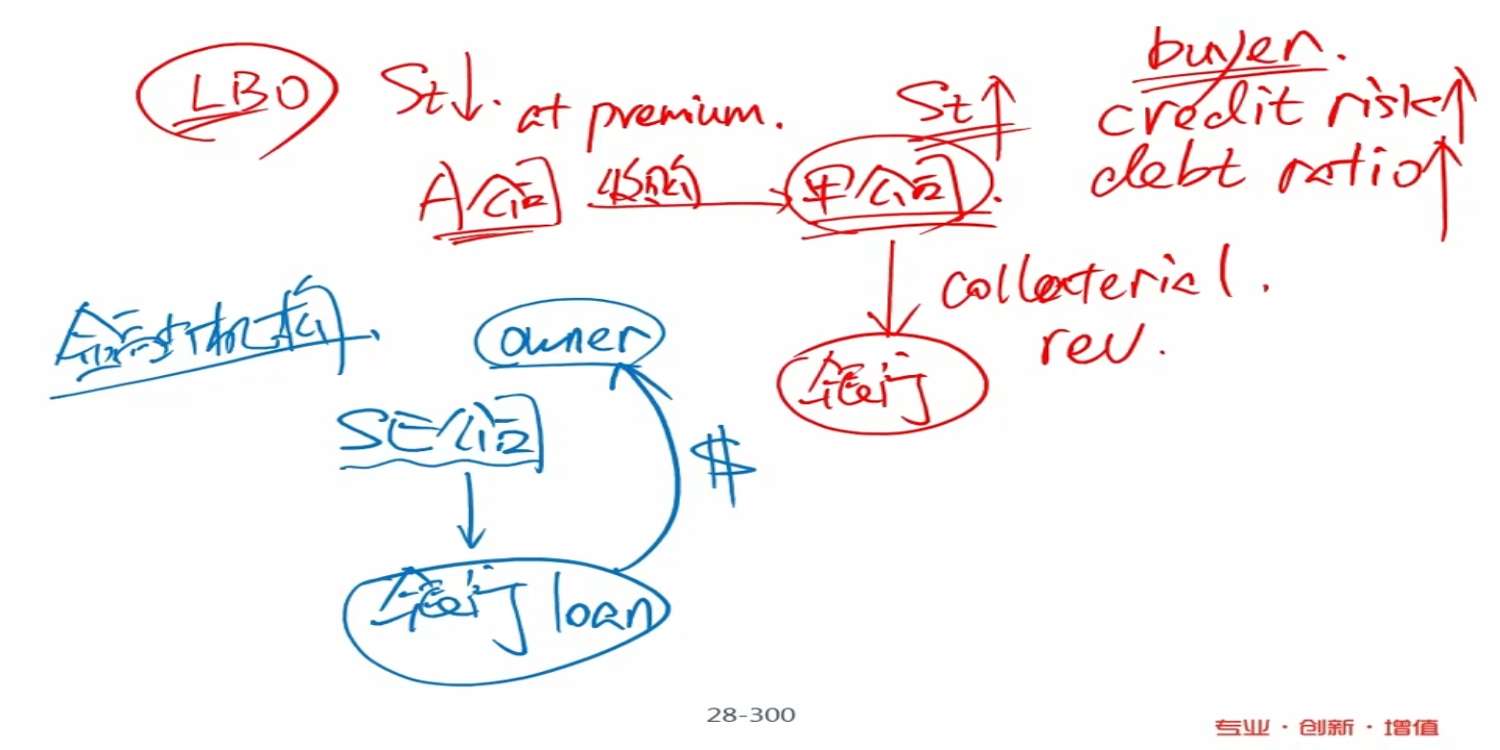 LBO St↓. at premium. St↑ buyer.
credit risk↑
debt ratio↑
A公司 收购 甲公司.
collaterial.
rev.
银行
金融机构.
owner
SE公司
$
银行 loan
28-300
专业·创新·增值